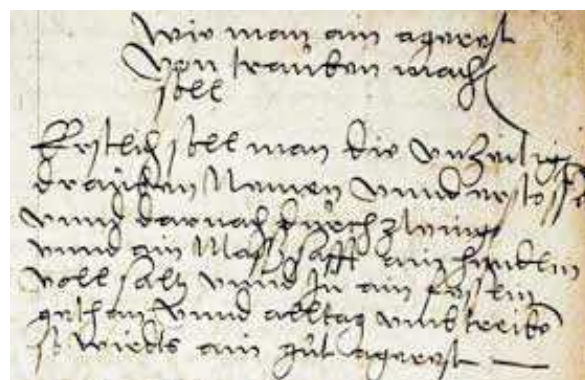 wie man ain agerest
von trauben mach
soll
Erstlich soll man die vnzeitig
drauben Nemen vnnd erstosse
vnnd darnach durch zwing
vnnd ain Mass safft ain hendlin
voll saltz vnnd Jn ain feslein
gethan vnnd alltag vmbtreibe
so wirdts ain gut agerest